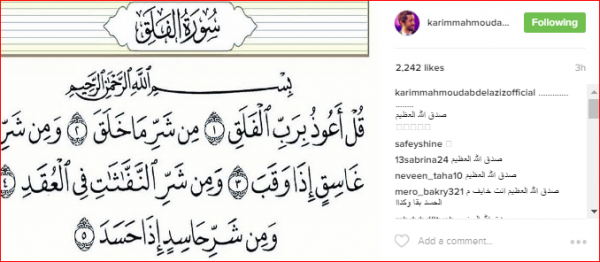 سُورَةُ الْفَلَقِ
بِسْمِ اللَّهِ الرَّحْمَٰنِ الرَّحِيمِ
قُلْ أَعُوذُ بِرَبِّ الْفَلَقِ ١ مِن شَرِّ مَا خَلَقَ ٢ وَمِن شَرِّ
غَاسِقٍ إِذَا وَقَبَ ٣ وَمِن شَرِّ النَّفَّاثَاتِ فِي الْعُقَدِ ٤
وَمِن شَرِّ حَاسِدٍ إِذَا حَسَدَ ٥
karimmahmouda... Following
2,242 likes 3h
karimmahmoudabdelazizofficial .............
........
صدق الله العظيم
safeyshine
13sabrina24 صدق الله العظيم
neveen_taha10 صدق الله العظيم
mero_bakry321 صدق الله العظيم انت خايف م
الحسد بقا وكدا!
Add a comment...